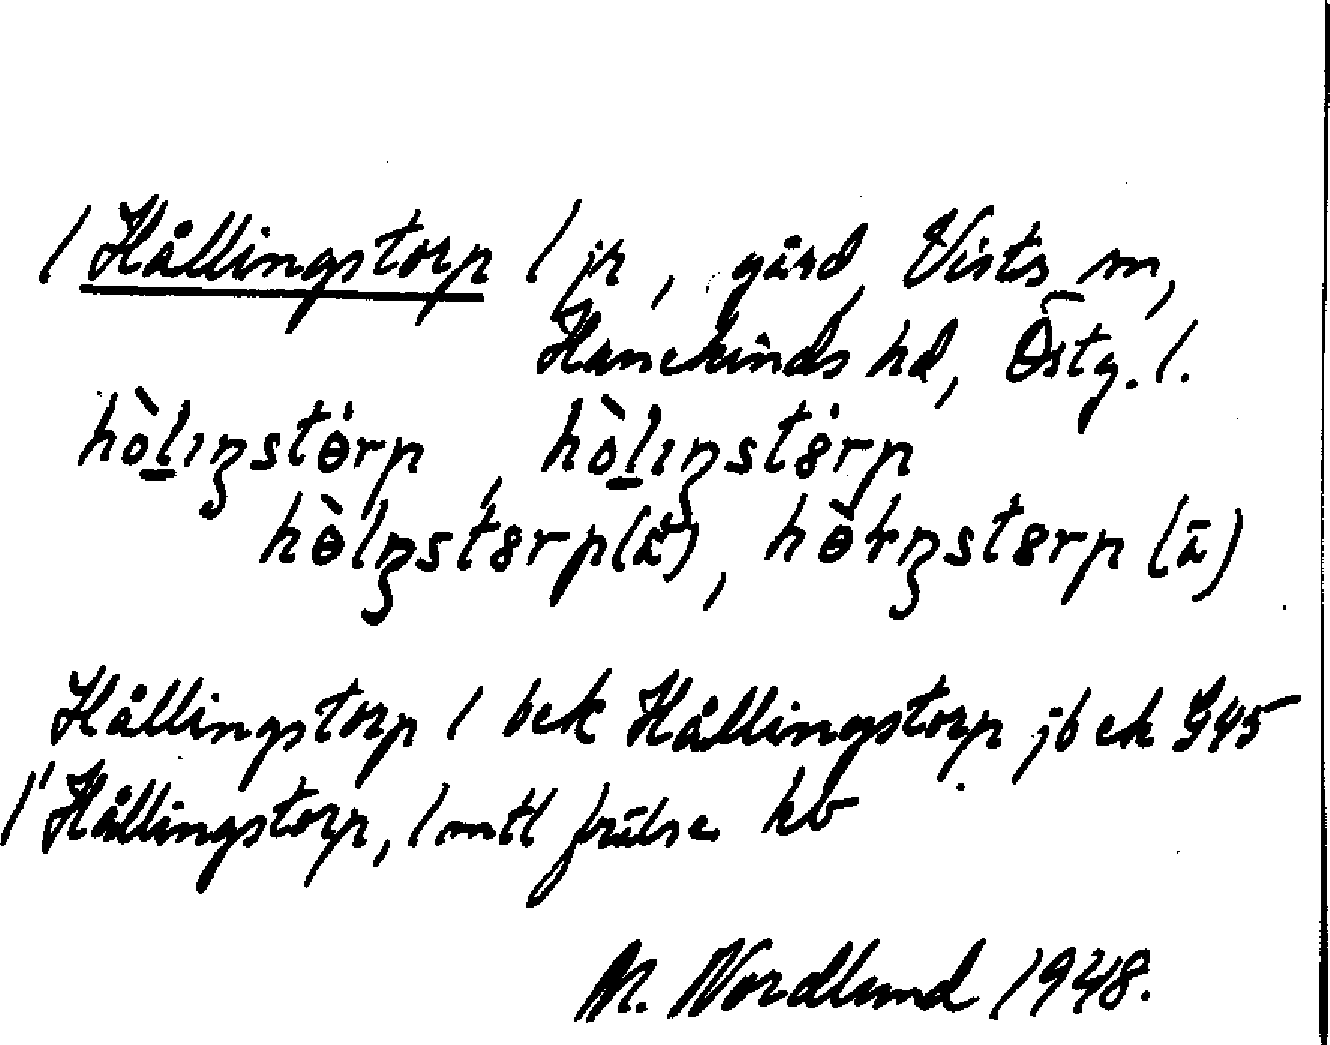 / Hållingstorp / jr, gård, Vists sn,
Hanekinds hd, Östg. l.
hòlıŋstɵ́rp, hòlıŋst8̇rp
hɵ̀lŋst8rp (ä), hɵ̀łŋst8rp (ä)
Hållingstorp / bek Hållingstorp jb ek G45
/ Hållingstorp, 1 mtl frälse hb
M. Nordlund 1948.